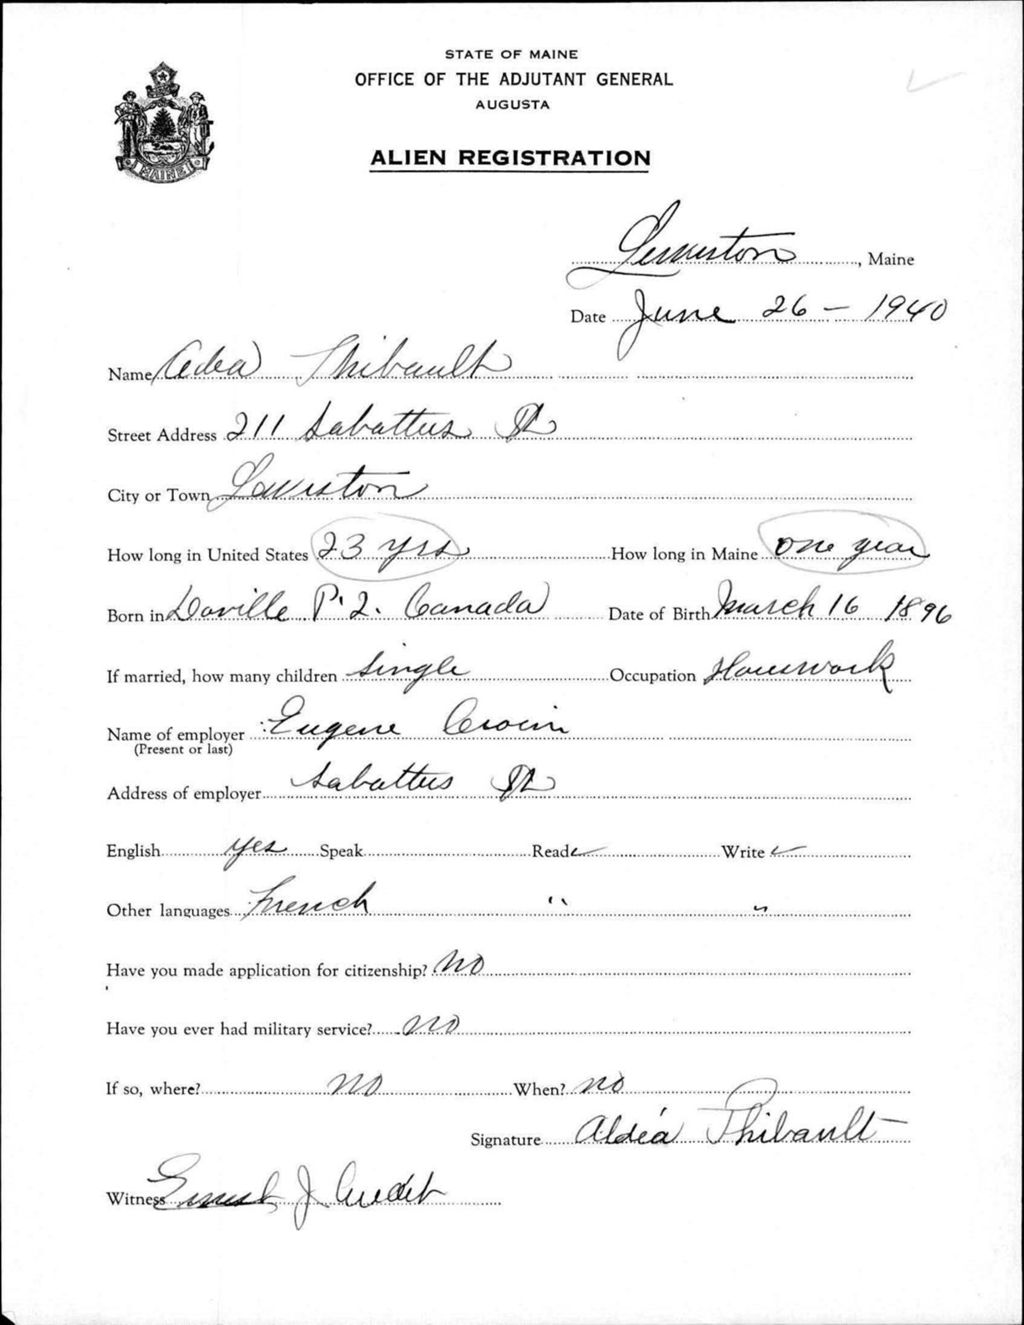 STATE OF MAINE
OFFICE OF THE ADJUTANT GENERAL
AUGUSTA
ALIEN REGISTRATION
MAINE
Lewiston, Maine
Date June 26 - 1940
Name Adea Thibault
Street Address 211 Sabattus St
City or Town Lewiston
How long in United States 23 yrs How long in Maine one year
Born in P.Q. Canada Date of Birth March 16 1896
If married, how many children Single Occupation Housework
Name of employer Eugene
(Present or last)
Address of employer Sabattus St
English yes Speak Read ✓ Write ✓
Other languages French " "
Have you made application for citizenship? No
Have you ever had military service? no
If so, where? no When? no
Signature Aldéa Thibault
Witness Ernest J Audet